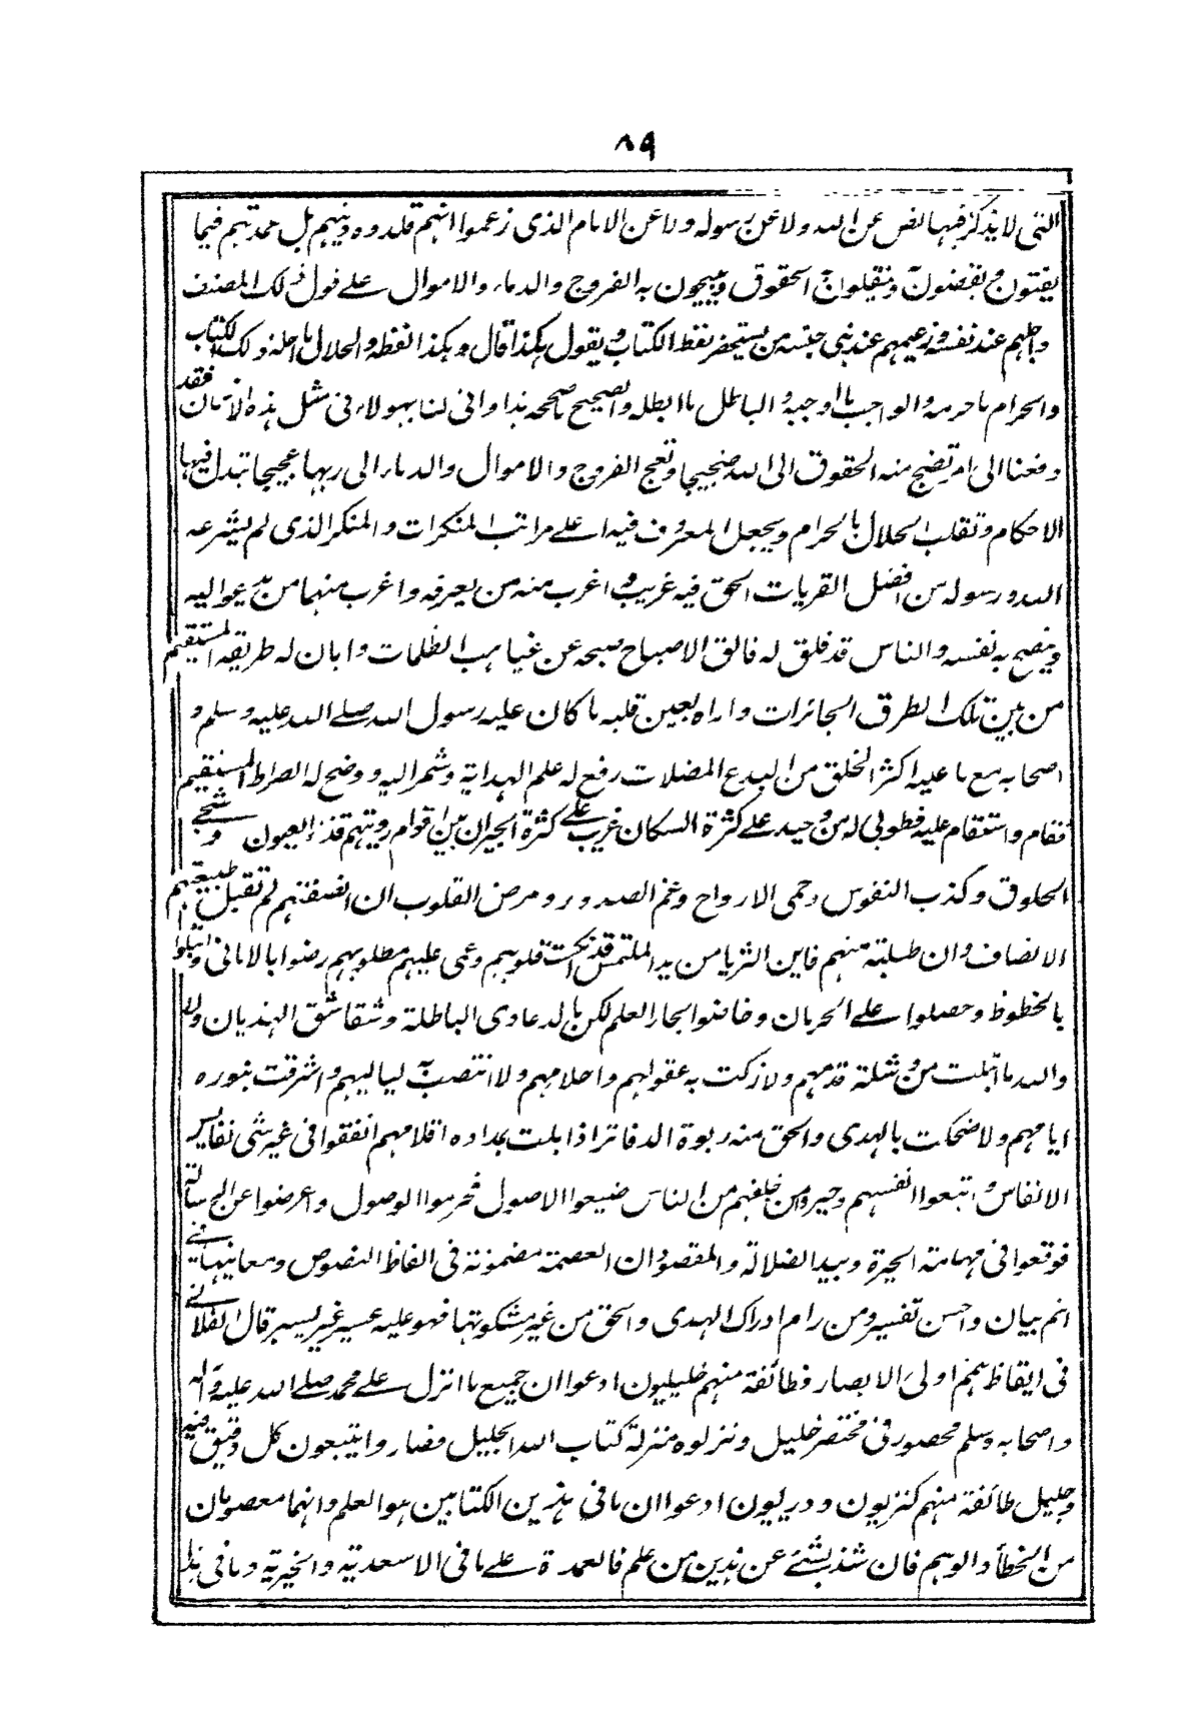 ٨٩
التى لا يذكر فيها نص عن الله ولا عن رسوله ولا عن الامام الذى زعموا انهم قلدوه دينهم بل عمدتهم فيما
يفتون ويقضون وينقلون به الحقوق ويبيحون به الفروج والدماء والاموال على قول ذلك المصنف
واجلهم عند نفسه وزعيمهم عند بنى جنسه من يستحضر لفظ الكتاب ويقول هكذا قال وهكذا لفظه والحلال ما احله ذلك الكتاب
والحرام ما حرمه والواجب ما اوجبه والباطل ما ابطله والصحيح ما صححه هذا وانى لنا بهولاء فى مثل هذه الازمان فقد
دفعنا الى امر تضج منه الحقوق الى الله ضجيجا وتعج الفروج والاموال والدماء الى ربها عجيجا تبدل فيها
الاحكام وتقلب الحلال بالحرام ويجعل المعروف فيه اعلى مراتب المنكرات والمنكر الذى لم يشرعه
الله ورسوله من افضل القربات الحق فيه غريب واغرب منه من يعرفه واغرب منهما من يدعو اليه
وينصح به نفسه والناس قد فلق له فالق الاصباح صبحه عن غياهب الظلمات وابان له طريقه المستقيم
من بين تلك الطرق الجائرات واراه بعين قلبه ما كان عليه رسول الله صلى الله عليه وسلم و
اصحابه مع ما عليه اكثر الخلق من البدع المضلات رفع له علم الهداية وشمر اليه ووضح له الصراط المستقيم
فقام واستقام عليه فطوبى له من وحيد على كثرة السكان غريب على كثرة الجيران بين اقوام رويتهم قذى العيون وشجى
الحلوق وكذب النفوس وحمى الارواح وغم الصدور ومرض القلوب ان انصفتهم لم تقبل طبيعتهم
الانصاف وان طلبته منهم فاين الثريا من يد الملتمس قد نكست قلوبهم وعمى عليهم مطلوبهم رضوا بالامانى وابتلوا
بالحظوظ وحصلوا على الحرمان وخاضوا بحار العلم لكن بالدعاوى الباطلة وشقاشق الهذيان ولا
والله ما ابتلت من وشله قدمهم ولا زكت به عقولهم واحلامهم ولا ابيضت به لياليهم واشرقت بنوره
ايامهم ولا ضحكت بالهدى والحق منه ربوة الدفاتر اذا بلت بمداده اقلامهم انفقوا فى غير شى نفايس
الانفاس واتبعوا انفسهم وحيروا من خلفهم من الناس ضيعوا الاصول فحرموا الوصول واعرضوا عن الرسالة
فوقعوا فى مهامه الحيرة وبيد الضلالة والمقصود ان العصمة مضمونة فى الفاظ النصوص ومعانيها فى
اتم بيان واحسن تفسير ومن رام ادراك الهدى والحق من غير مشكوتها فهو عليه عسير غير يسير قال الفلانى
فى ايقاظ همم اولى الابصار فطائفة منهم خليليون ادعوا ان جميع ما انزل على محمد صلى الله عليه واله
واصحابه وسلم محصور فى مختصر خليل ونزلوه منزلة كتاب الله الجليل فصاروا يتبعون كل دقيق فيه
وجليل طائفة منهم كنزيون ودرليون ادعوا ان ما فى هذين الكتابين هو العلم وانهما معصومان
من الخطأ والوهم فان شذ بشئ عن هذين من علم فالعمدة على ما فى الاسعدية والخيرية وما فى هذا